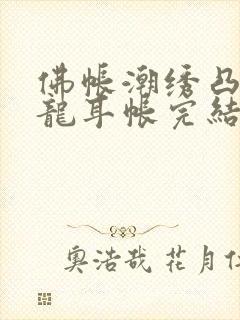 佛帳潮绣凸
龍耳帐完結
奥浩哉 花月仁